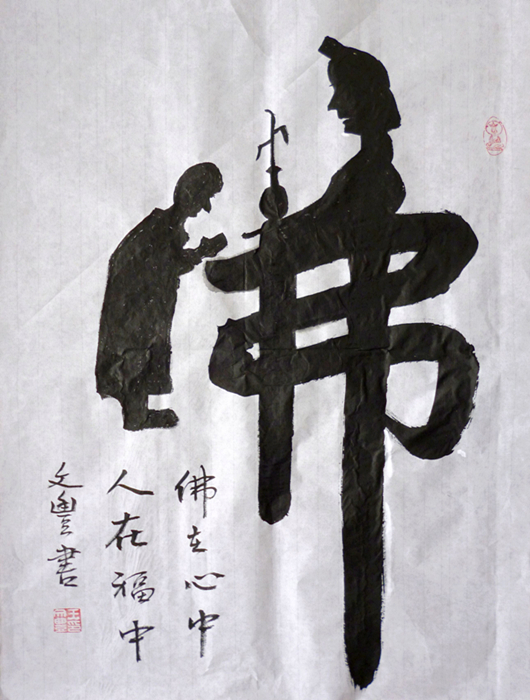 佛
佛在心中
人在福中
文豊書